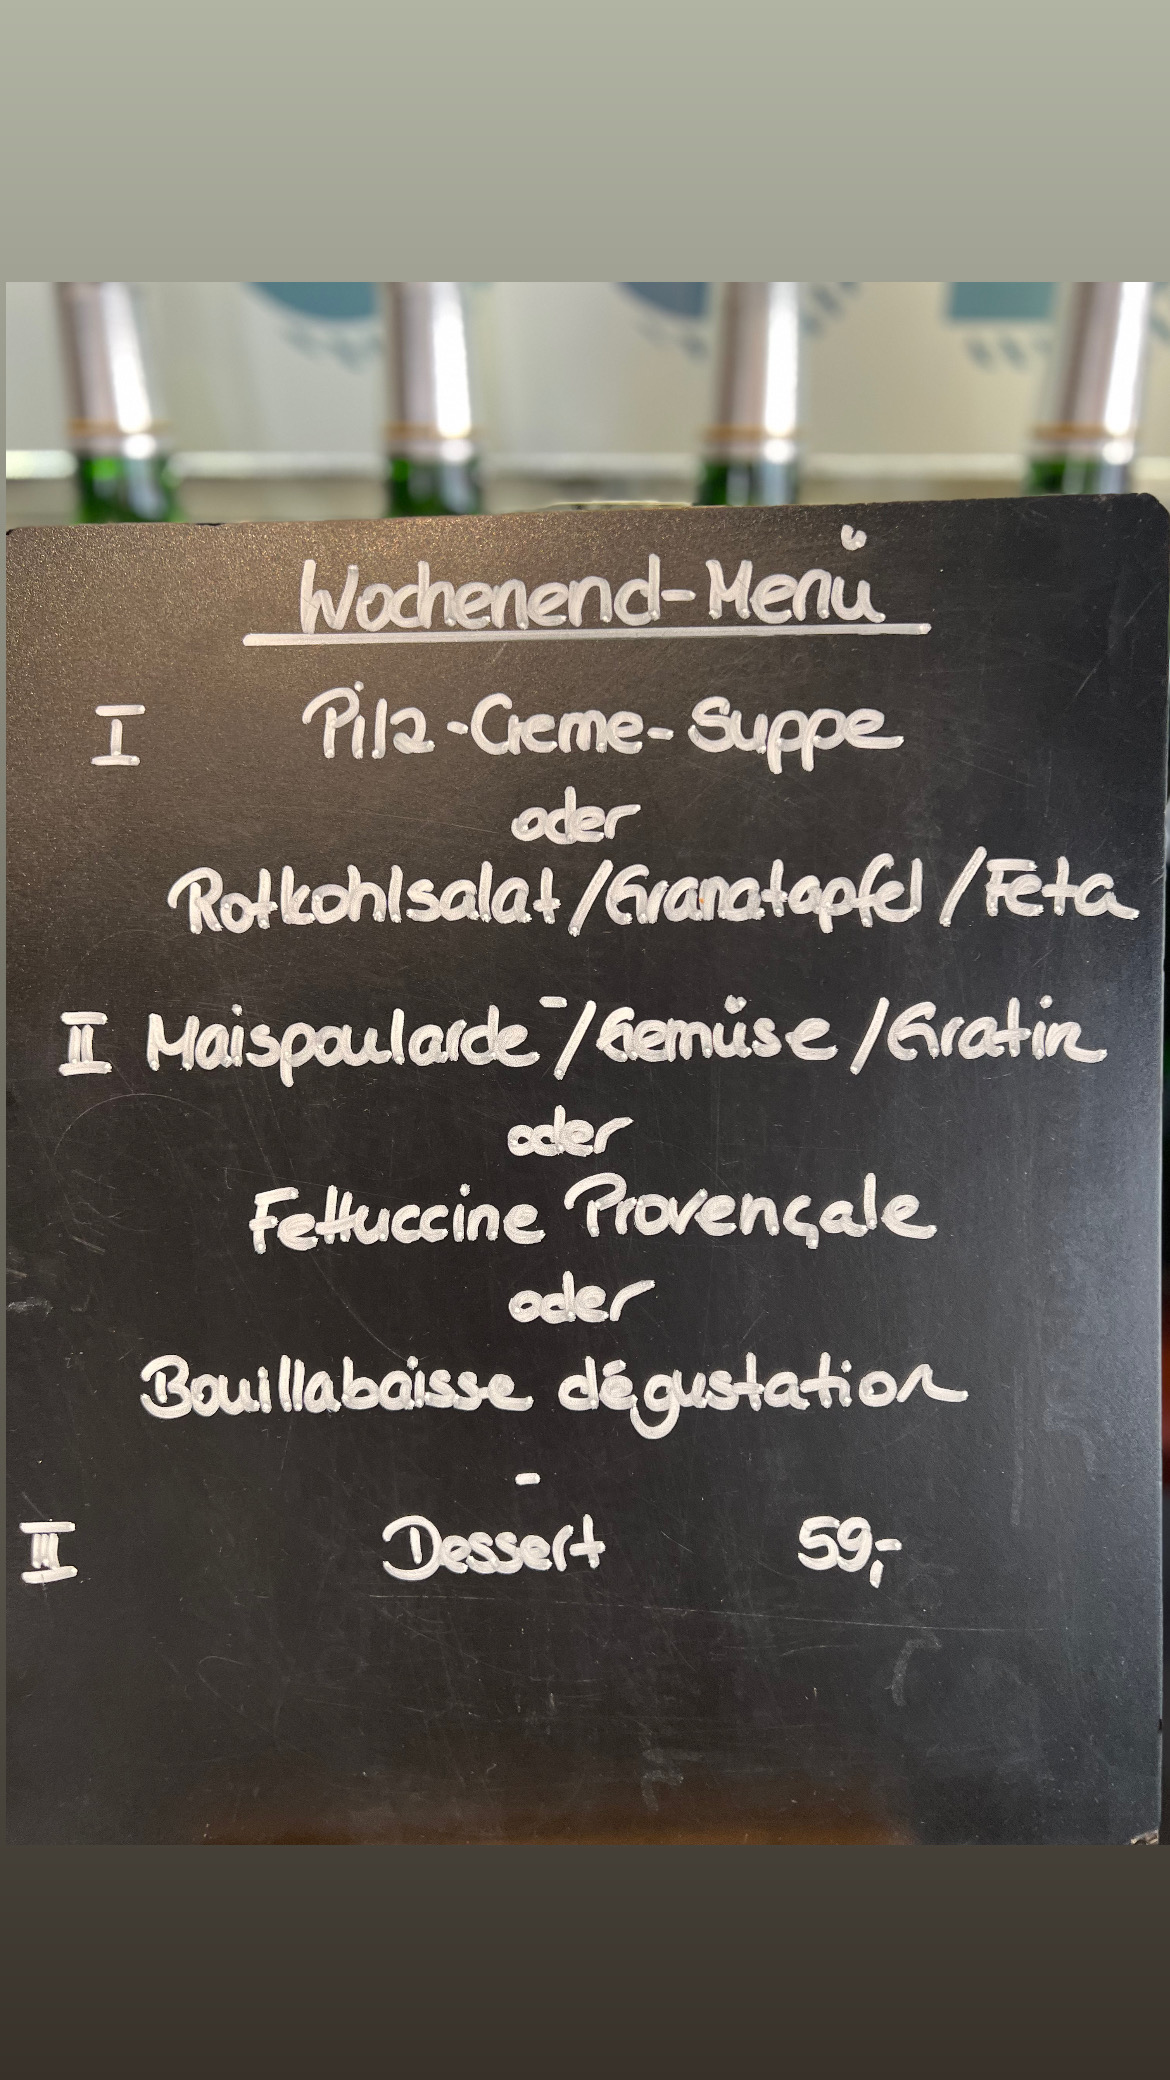 Wochenend-Menü
I Pilz-Creme-Suppe
oder
Rotkohlsalat/Granatapfel/Feta
-
II Maispoularde/Gemüse/Gratin
oder
Fettuccine Provençale
oder
Bouillabaisse dégustation
-
III Dessert 59,-